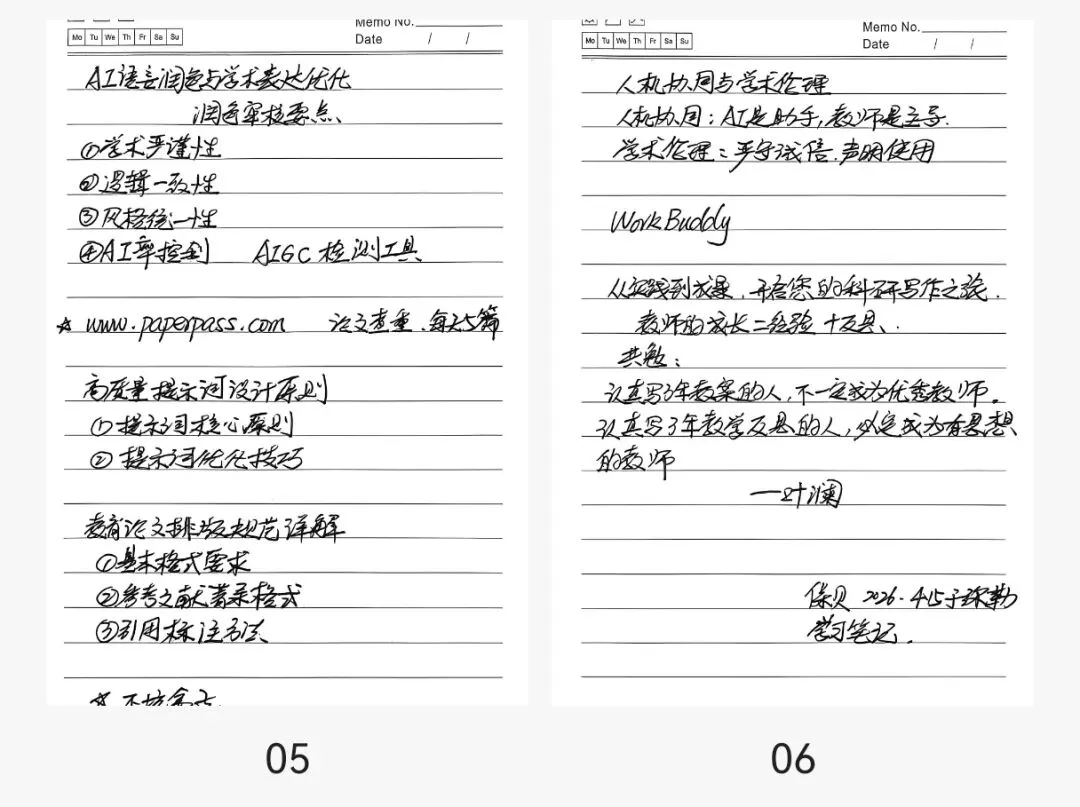 Memo No.
Mo Tu We Th Fr Sa Su
Date / /
AI语言润色与学术表达优化
润色审核要点
①学术严谨性
②逻辑一致性
③风格统一性
④AI率控制 AIGC检测工具
☆ www.paperpass.com 论文查重,每天5篇
高质量提示词设计原则
①提示词核心原则
②提示词优化技巧
教育论文排版规范详解
①基本格式要求
②参考文献著录格式
③引用标注方法
05
Memo No.
Mo Tu We Th Fr Sa Su
Date / /
人机协同与学术伦理
人机协同:AI是助手,教师是主导.
学术伦理:严守诚信.声明使用
WorkBuddy
从实践到成果,开启您的科研写作之旅.
教师的成长=经验+反思.
共勉:
认真写3年教案的人,不一定成为优秀教师。
认真写3年教学反思的人,必定成为有思想
的教师
—叶澜
2026.4.15于弥勒
学习笔记.
06